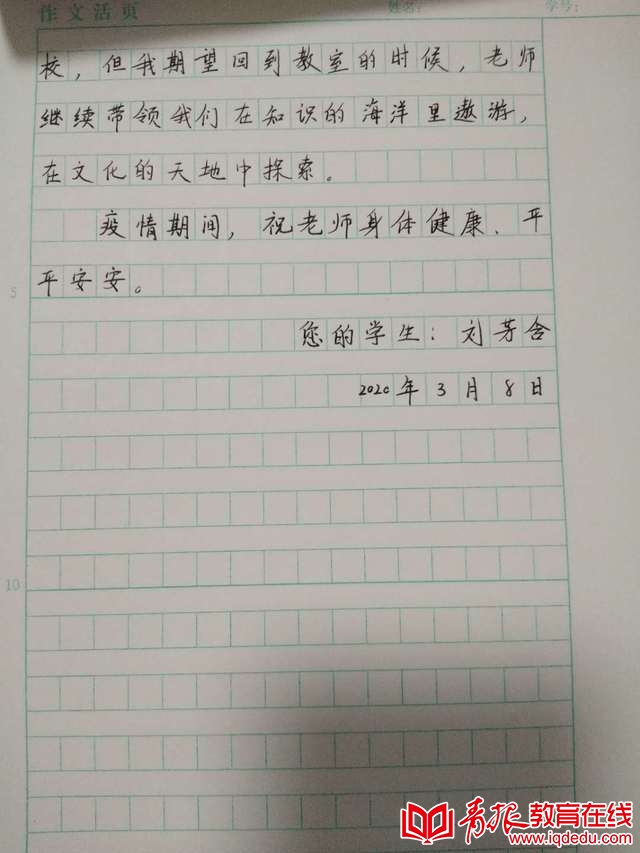 作文活页 姓名: 学号:
校，但我期望回到教室的时候，老师
继续带领我们在知识的海洋里遨游，
在文化的天地中探索。
疫情期间，祝老师身体健康、平
5
平安安。
您的学生：刘芳含
2020年3月8日
10
青报教育在线
www.iqdedu.com